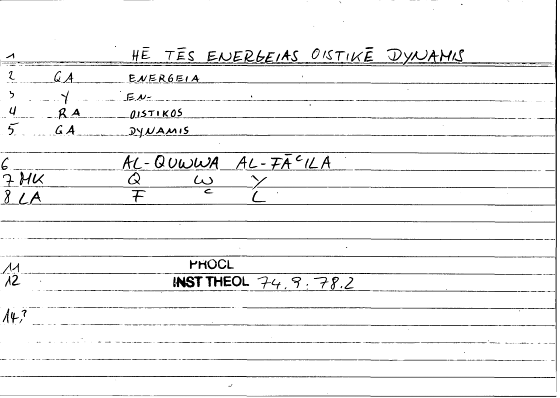 1 HĒ TĒS ENERGEIAS OISTIKĒ DYNAMIS
2 GA ENERGEIA
3 Y EN-
4 RA OISTIKOS
5 GA DYNAMIS
6 AL-QUWWA AL-FĀʿILA
7 MK Q W Y
8 LA F ʿ L
11 PROCL
12 INST THEOL 74.9.78.2
14,?